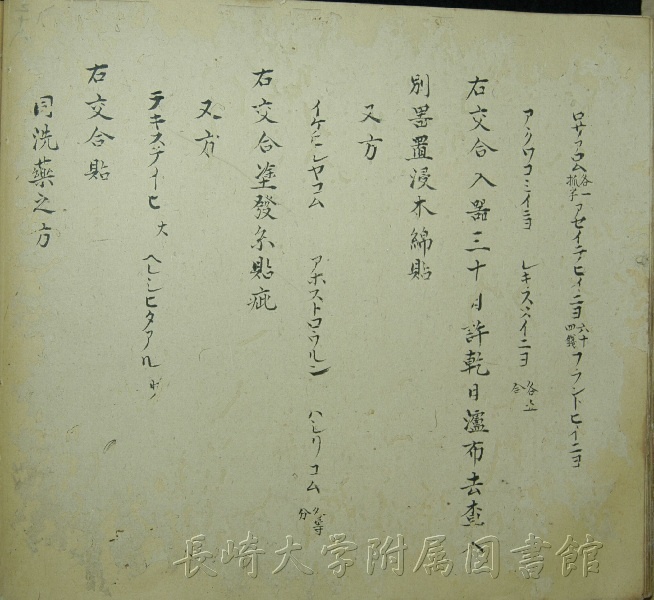 ロサアロム各一抓半アセイテヒイニヨ六十四錢フランドヒイニヨ
アクワコミイニヨ レキスハイニヨ 各五合
右交合入器三十日許乾日瀘布去査
別器置浸木綿貼
又方
イケヒシヤコム アホストロウルン ハシリコム 分等
右交合塗發糸貼疵
又方
テキステイヒ 大 ヘレシヒタアル
右交合貼
同洗藥之方
長崎大学附属図書館